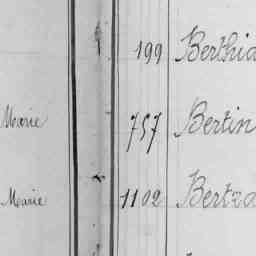 199 Berthia
Marie 757 Bertin
Marie 1102 Bertza